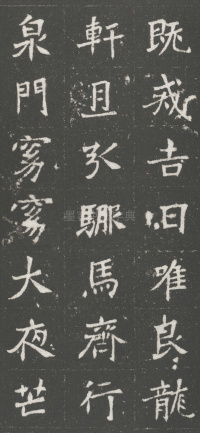 既戒吉日唯良龍
軒引騑馬齊行
泉門窈窈大夜芒